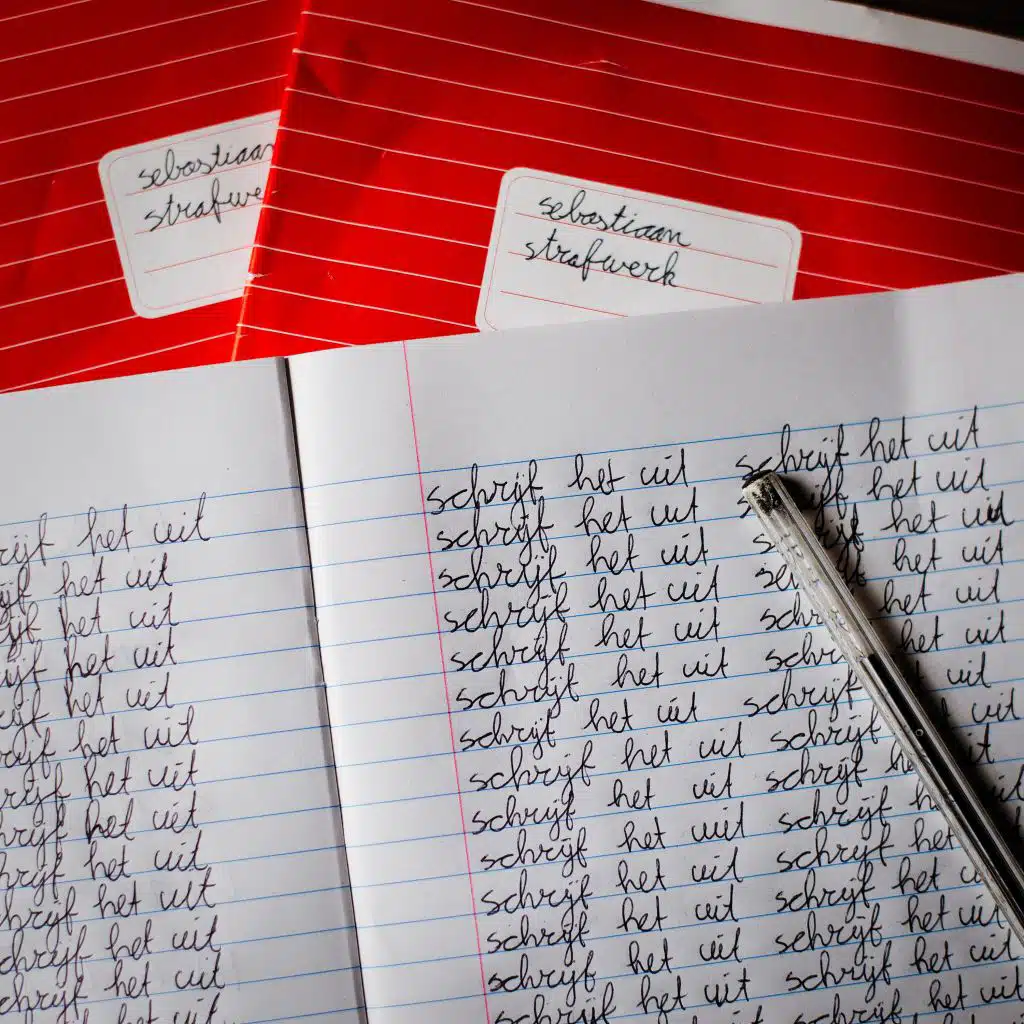 sebastiaan
strafwe
sebastiaan
strafwerk
rijf het uit
ijf het uit
ijf het uit
ijf het uit
rijf het uit
rijf het uit
rijf het uit
hrijf het uit
hrijf het uit
chrijf het uit
chrijf het uit
chrijf het uit
schrijf het uit schrijf het uit
schrijf het uit het uit
schrijf het uit het uit
schrijf het uit het uit
schrijf het uit het uit
schrijf het uit het uit
schrijf het uit schrijf uit
schrijf het uit schrijf uit
schrijf het uit schrijf
schrijf het uit schrijf
schrijf het uit schrijf het
schrijf het uit schrijf het uit
schrijf het uit schrijf het uit
schrijf het uit schrijf het uit